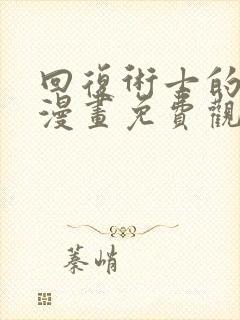 回復術士的
漫畫免費觀
蓁峭